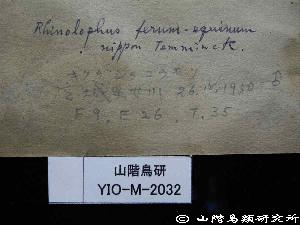 Rhinolophus ferum-equinum
nippon Temminck.
キクガシラコウモリ
宮城県女川 26.IV.1930 ♂
F 9, E 26, T. 35
山階鳥研
YIO-M-2032
© 山階鳥類研究所